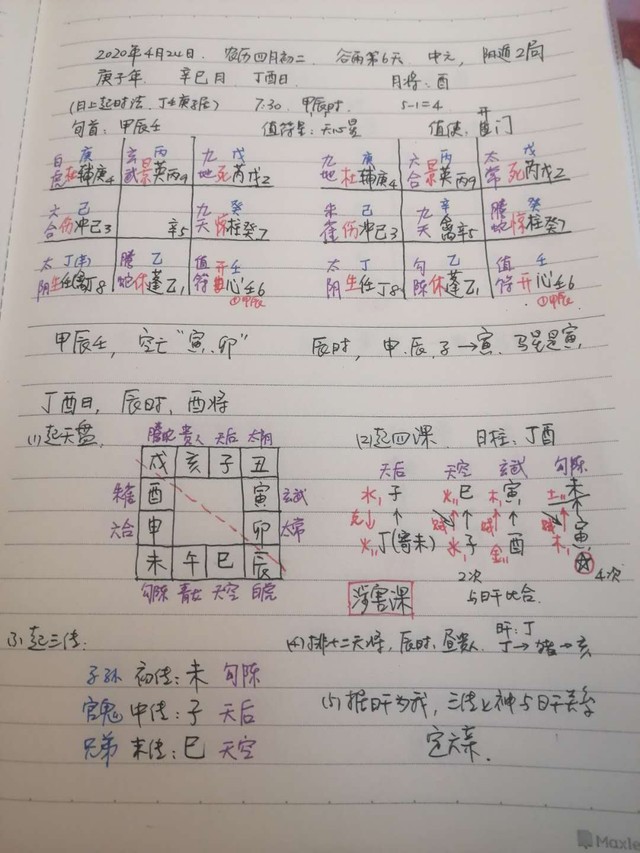 2020年4月24日. 农历四月初二 谷雨第6天 中元, 阳遁2局
庚子年 辛巳月 丁酉日 月将:酉
(日上起时法, 丁壬庚子居) 7:30 甲辰时. 5-1=4
旬首:甲辰壬 值符星:天心星 值使:开门
白虎 庚 杜辅庚4 玄武 丙 景英丙9 九地 戊 死芮戊2 九地 庚 杜辅庚4 六合 丙 景英丙9 太常 戊 死芮戊2
六合 己 伤冲己3 辛5 九天 癸 惊柱癸7 朱雀 己 伤冲己3 九天 辛 禽辛5 腾蛇 癸 惊柱癸7
太阴 丁(辛) 生任(禽)丁8 腾蛇 乙 休蓬乙1 值符 壬 开心壬6 太阴 丁 生任丁8 勾陈 乙 休蓬乙1 值符 壬 开心壬6
①甲辰 ①甲辰
甲辰壬, 空亡"寅.卯" 辰时, 申.辰.子→寅. 马星是寅,
丁酉日, 辰时, 酉将
(1)起天盘, (2)起四课. 日柱:丁酉
腾蛇 贵人 天后 太阴 天后 天空 玄武 勾陈
戌 亥 子 丑 水,子 火,,巳 木,寅 土,,未
朱雀 酉 寅 玄武 克↓ ↑ 贼 ↑ 贼 ↑ 贼 ↑
六合 申 卯 太常 火,,丁(寄未) 水,子 金,,酉 木,寅
未 午 巳 辰 2次 4次
勾陈 青龙 天空 白虎 涉害课 与日干比合.
(3)起三传: (4)排十二天将, 辰时, 昼贵人. 日干:丁
丁→猪→亥
子孙 初传:未 勾陈
官鬼 中传:子 天后 (5)据日干为我, 三传之神与日干关系
兄弟 末传:巳 天空 定六亲.
Maxle